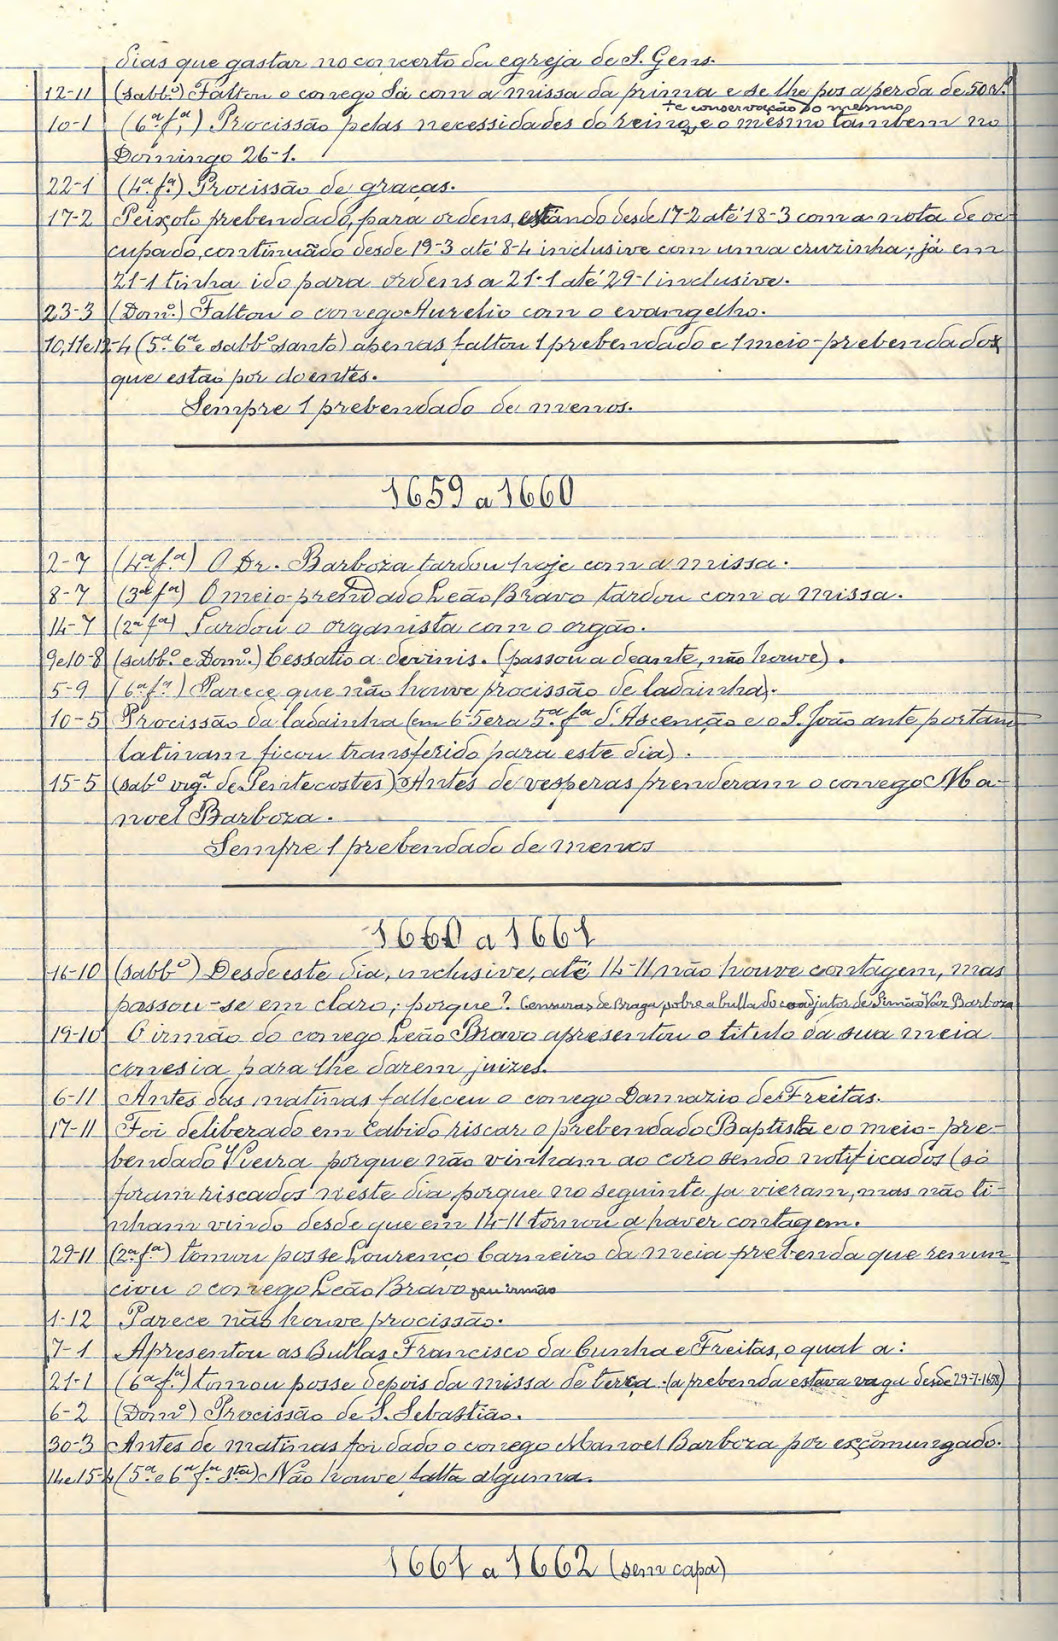 dias que gastar no concerto da egreja de S. Gens.
12-11 (sabb.º) Faltou o conego Sá com a missa da prima e se lhe pos a perda de 50 rs.
+e conservação do mesmo,
10-1 (6ª fª,) Procissão pelas necessidades do reino, e o mesmo tambem no
Domingo 26-1.
22-1 (4ª fª) Procissão de graças.
17-2 Peixoto prebendado, para ordens, estando desde 17-2 até 18-3 com a nota de oc-
cupado, continuãdo desde 19-3 até 8-4 inclusive com uma cruzinha; já em
21-1 tinha ido para ordens a 21-1 até 29-1 inclusive.
23-3 (Domº.) Faltou o conego Aurelio com o evangelho.
10, 11 e 12-4 (5ª 6ª e sabbº santo) apenas faltou 1 prebendado e 1 meio-prebendado
que estão por doentes.
Sempre 1 prebendado de menos.
1659 a 1660
2-7 (4ª fª) O Dr. Barboza tardou hoje com a missa.
8-7 (3ª fª) O meio-prendado Leão Bravo tardou com a missa.
14-7 (2ª fª) Tardou o organista com o orgão.
9 e 10-8 (sabbº. e Domº.) Cessatio a devinis. (passou a deante, não houve).
5-9 (6ª fª) Parece que não houve procissão de ladainha).
10-5 Procissão da ladainha (em 6-5 era 5ª fª d'Ascenção e o S. João ante portam
latinam ficou transferido para este dia).
15-5 (sabº vigª de Pentecostes) Antes de vesperas prenderam o conego Ma-
noel Barboza.
Sempre 1 prebendado de menos
1660 a 1661
16-10 (sabbº) Desde este dia, inclusive, até 14-11 não houve contagem, mas
passou-se em claro; porque? Censuras de Braga sobre a bulla do coadjutor de Simão Vaz Barboza
19-10 O irmão do conego Leão Bravo apresentou o titulo da sua meia
conesia para lhe darem juizes.
6-11 Antes das matinas falleceu o conego Damazio de Freitas.
17-11 Foi deliberado em Cabido riscar o prebendado Baptista e o meio-pre-
bendado Vieira porque não vinham ao coro sendo notificados (só
foram riscados n'este dia, porque no seguinte ja vieram, mas não ti-
nham vindo desde que em 14-11 tornou a haver contagem.
29-11 (2ª fª) tomou posse Lourenço Carneiro da meia prebenda que renun-
ciou o conego Leão Bravo seu irmão
1-12 Parece não houve procissão.
7-1 Apresentou as Bullas Francisco da Cunha e Freitas, o qual a:
21-1 (6ª fª) tomou posse depois da missa de terça. (a prebenda estava vaga desde 29-7-1658)
6-2 (Domº) Procissão de S. Sebastião.
30-3 Antes de matinas foi dado o conego Manoel Barboza por excomungado.
14 e 15-4 (5ª e 6ª fª stª) Não houve falta alguma.
1661 a 1662 (sem capa)